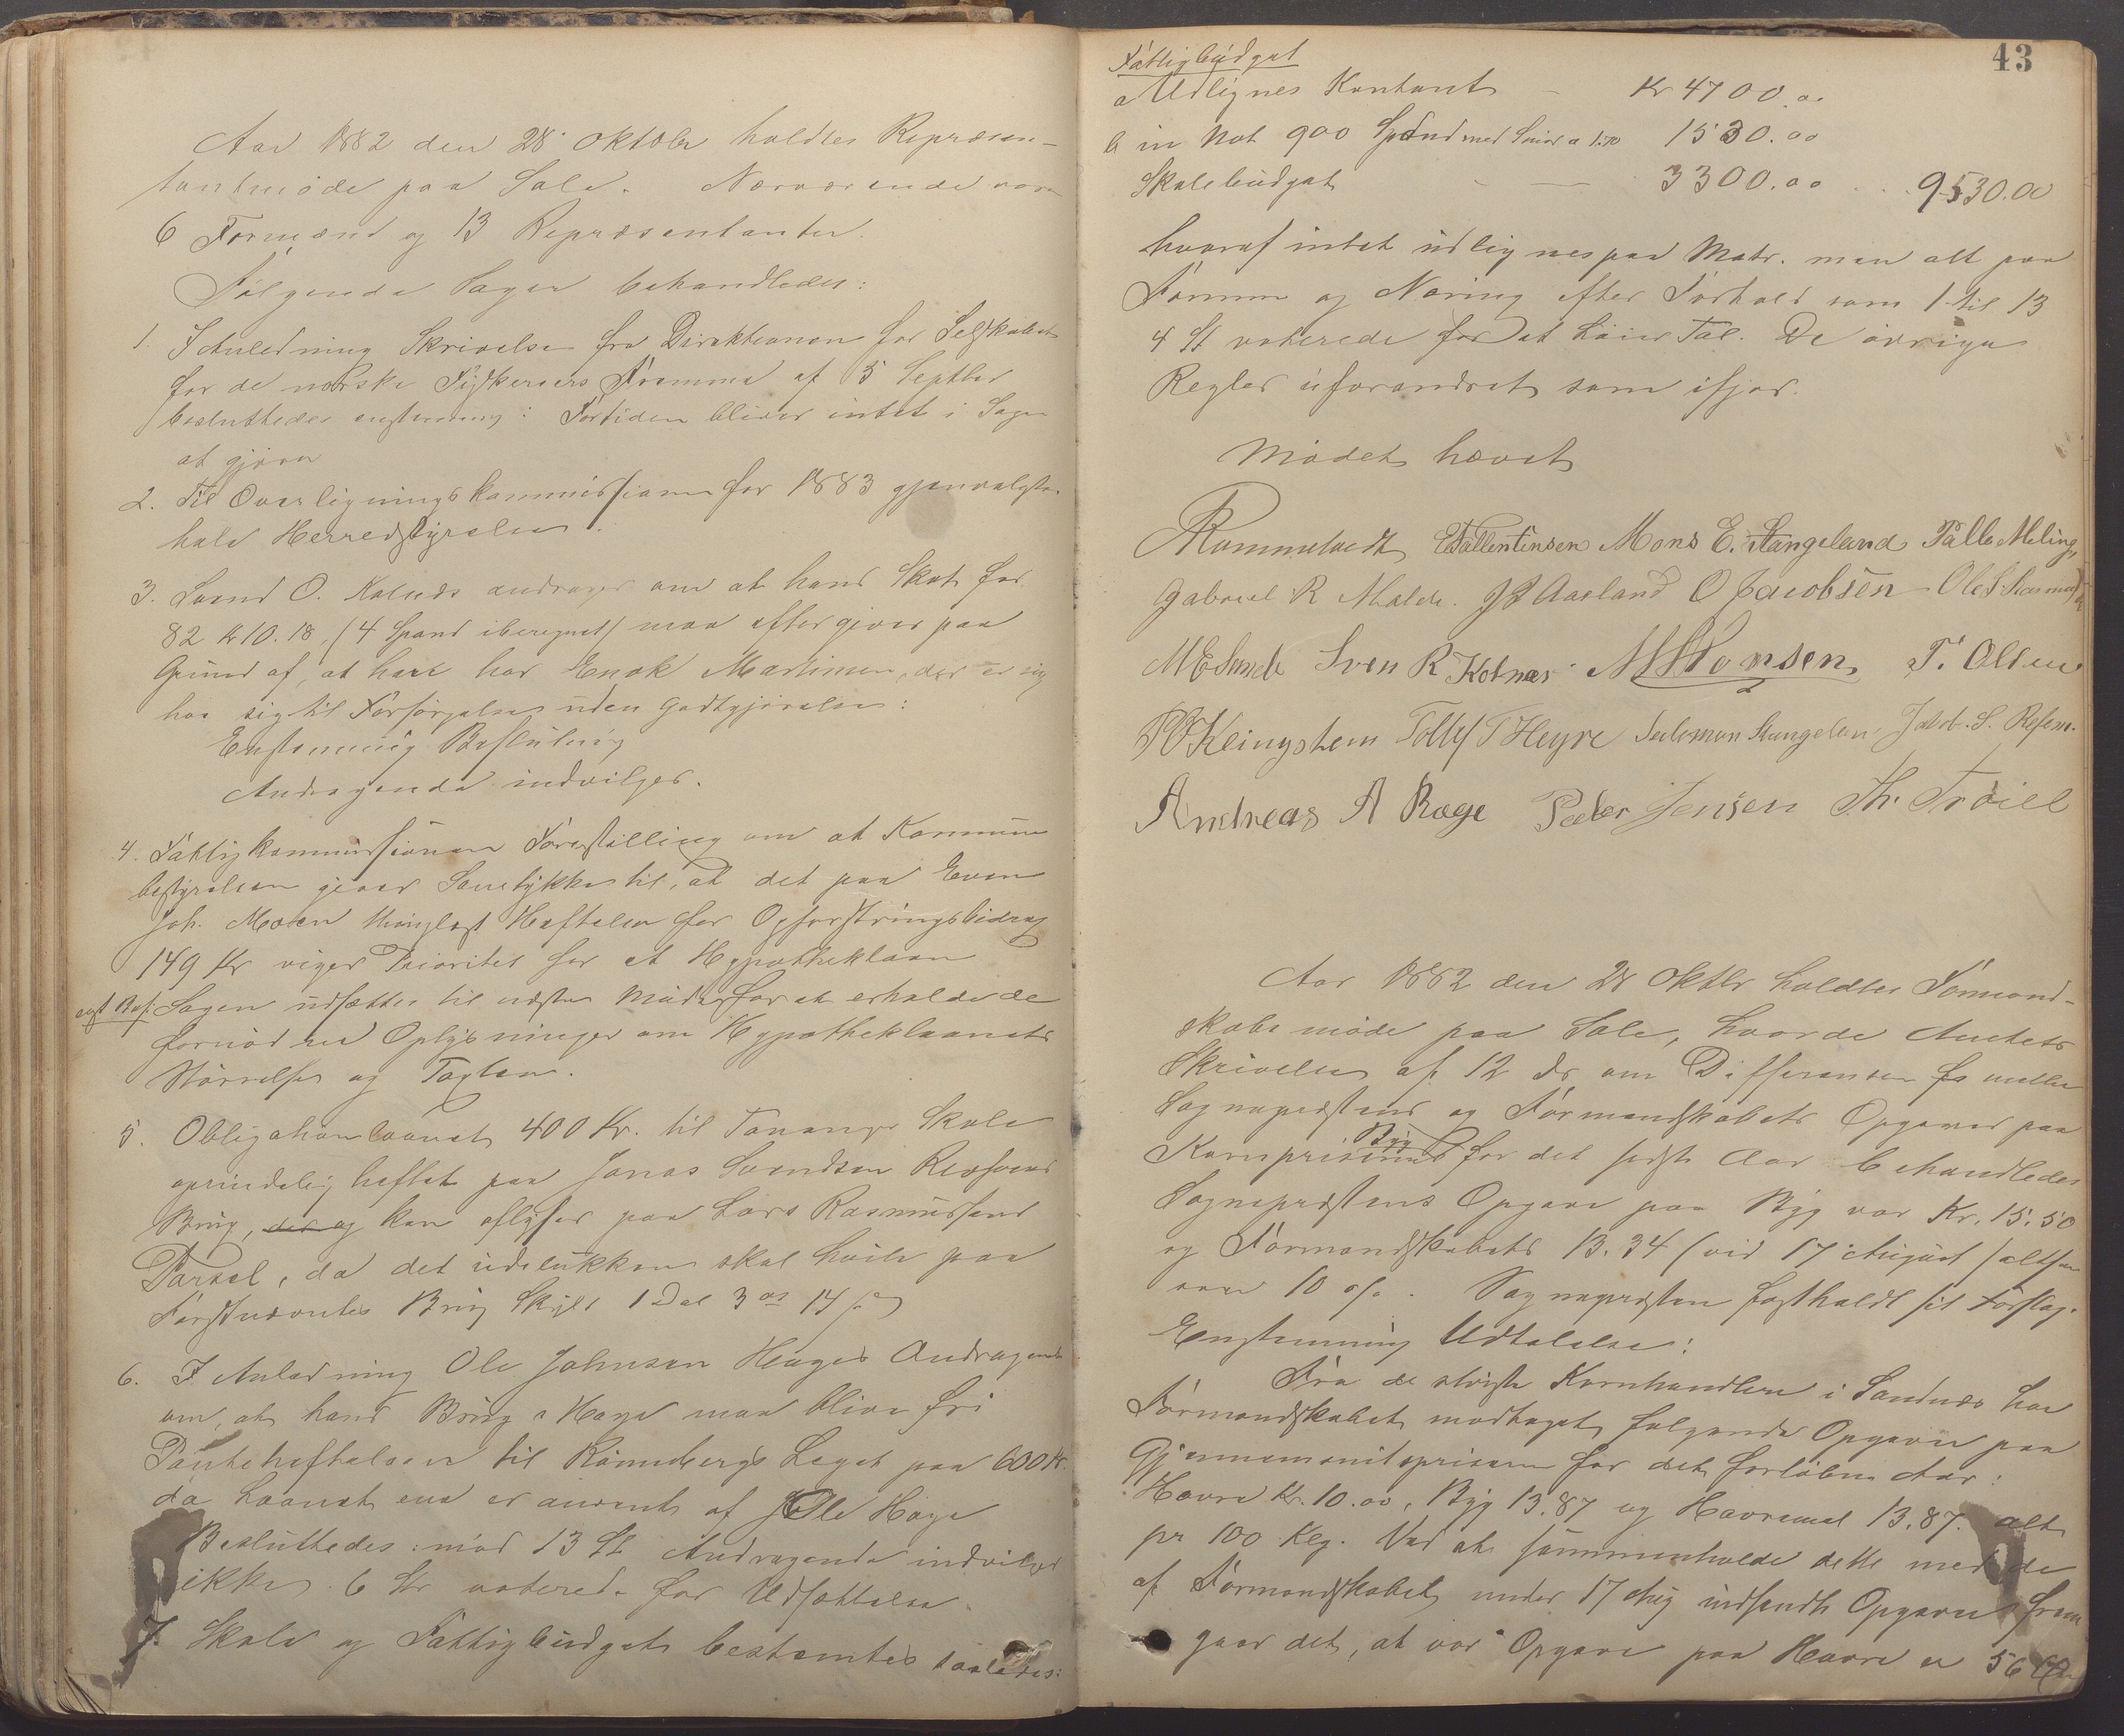 Aar 1882 den 28 Oktober holdtes Repræsen-
tantmøde paa Sole. Nærværende vare
6 Formænd og 13 Repræsentanter.
Følgende Sager behandledes:
1. I Anledning Skrivelse fra Direktionen for Selskabet
for de norske Fiskeriers Fremme af 5 Septbr
besluttedes enstemmig: Fortiden bliver intet i Sagen
at gjøre
2. Til Overligningskommission for 1883 gjenvalgtes
hele Herredstyrelsen.
3. Svend O. Kolnæs andrager om at hans Skat for
82 Kr 10.18, (4 Spand iberegnet) maa eftergives paa
Grund af, at han har Enok Martinsen, der er
hos sig til Forsørgelse uden Godtgjørelse:
Enstemmig Beslutning
Andragende indvilges.
4. Fattigkommissionens Forestilling om at Kommune
bestyrelsen giver Samtykke til, at det paa Even
Joh. Moen thinglæst Heftelse for Opfostringsbidrag
149 Kr viger Prioritet for et Hypotheklaan
enst Besl: Sagen udsættes til næste Møde for at erholde de
fornødne Oplysninger om Hypotheklaanets
Størrelse og Taxten.
5. Obligationlaanet 400 Kr. til Tananger Skole
oprindelig heftet paa Jonas Svendsen Risfoens
Brug, der og kan aflyses paa Lars Rasmussens
Parsel, da det udelukkende skal hvile paa
Førstnævntes Brug Skyld 1 Dal 3 ort 14 s
6. I Anledning Ole Johnsen Hauges Andragende
om, at hans Brug i Haga maa blive fri
Panteheftelsen til Rønnebergs Legat paa 600 Kr.
da Laanet end er anvendt af Ole Haga
Besluttedes: mod 13 St Andragende indvilges
ikke. 6 St voterede for Udsættelse.
7. Skole og Fattigbudget bestemtes saaledes:
43
Fattigbudget
a Udlignes Kontant – Kr 4700.00
b in Nat 900 Spand med Smør a 1.70 1530.00
Skolebudget – — 3300.00 .. 9530.00
hvoraf intet udlignes paa Matr. men alt paa
Formue og Næring efter Forhold som 1 til 13
4 St voterede for et høier Tal. De øvrige
Regler uforandret som ifjor.
Mødet hævet
Rommetvedt E Tallentinsen Mons E. Stangeland Palle Meling,
Gabriel R Malde. J J Aasland O Jacobsen Ole S.
M E Sande Sven R Kolnæs Tomsen T. Olsen
Kleingstem Tollef T Heyre Salomon Stangelan Jakob. S.
Andreas A Røge Peder Jensen Th. Trøiel
Aar 1882 den 28 Oktbr holdtes Formand-
skabsmøde paa Sole, hvor de Amtets
Skrivelse af 12 ds om Differensen fo mellem
Sognepræstens og Formandskabets Opgaver paa
Bÿg
Kornpriserne for det sidste Aar behandledes
Sognepræstens Opgave paa Byg var Kr. 15.50
og Formandskabets 13.34 (vid 17 August) altsaa
over 10 o/o. Sognepræsten fastholdt sit Forslag.
Enstemmig Udtalelse:
Fra de største Kornhandlere i Sandnæs har
Formandskabet modtaget følgende Opgaver paa
Gjennemsnitspriserne for det forløbne Aar:
Havre Kr. 10.00, Byg 13.87 og Havremel 13.87. alt
pr 100 Klg. Ved at sammenholde dette med de
af Formandskabet under 17 Aug indsendte Opgaver frem
gaar det, at vor Opgave paa Havre er 56 Øre